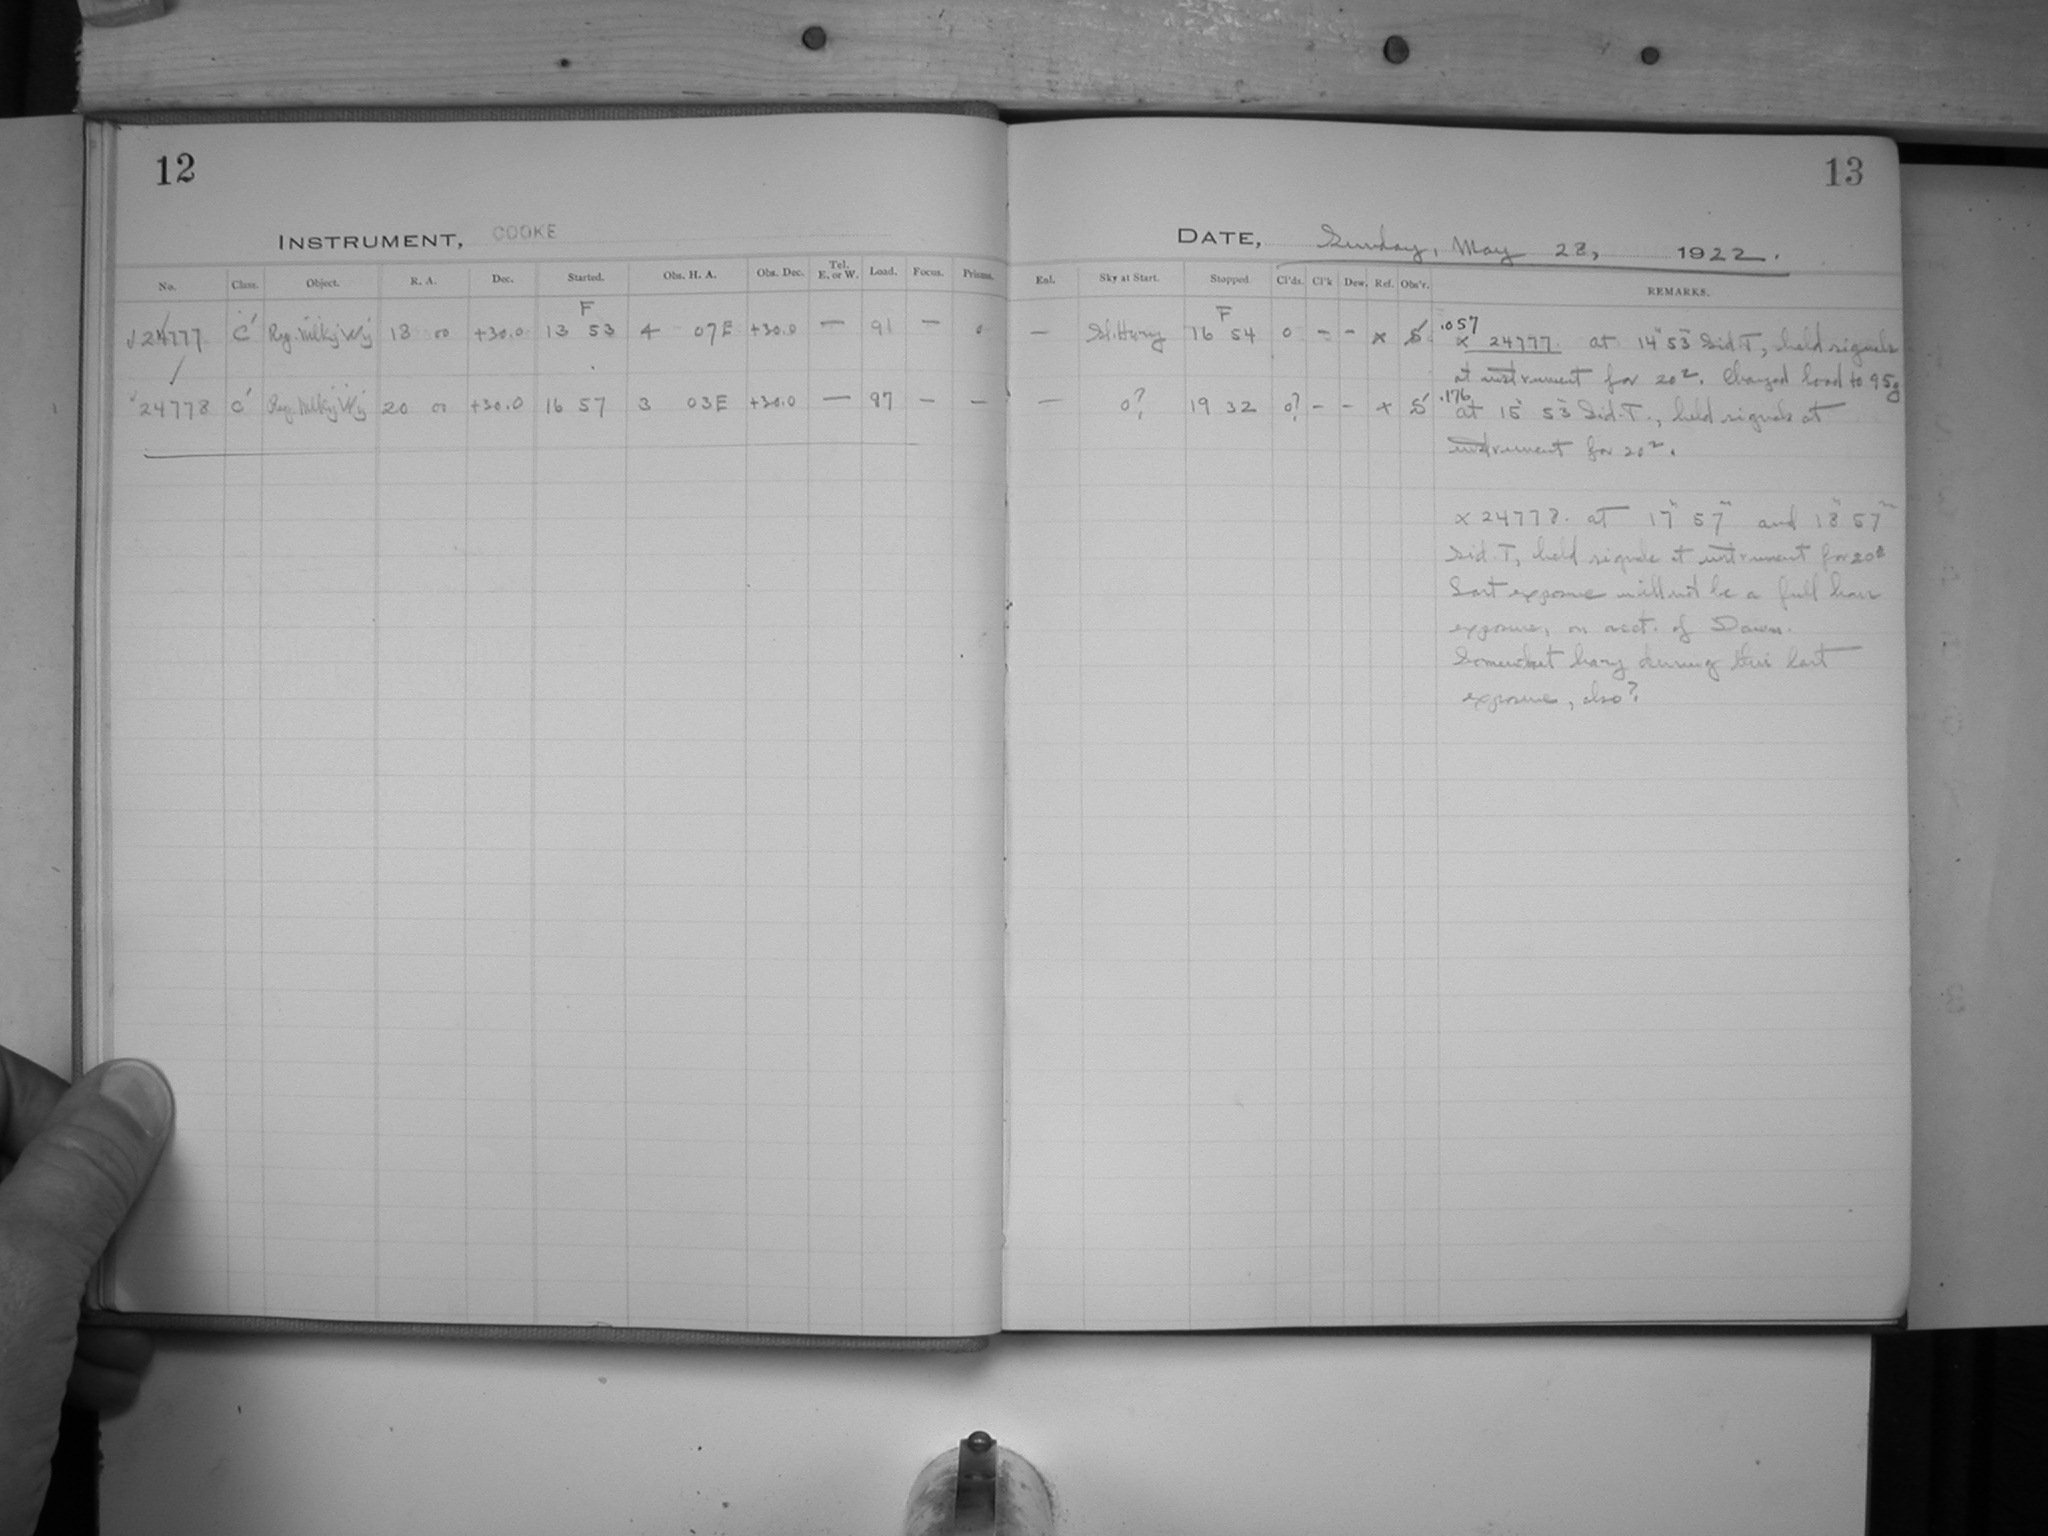 12
13
INSTRUMENT, COOKE
DATE, Sunday, May 28, 1922.
No. Class. Object. R. A. Dec. Started. Obs. H. A. Obs. Dec. Tel. E. or W. Load. Focus. Prisms.
Enl. Sky at Start. Stopped Cl'ds. Cl'k Dew. Ref. Obs'r. REMARKS.
F
F
24777 C' Reg. Milky Way 18 00 +30.0 13 53 4 07E +30.0 — 91 — 0
— Sl. Hazy 16 54 0 - - x S .057
x 24777. at 14h 53m Sid. T, held signals
at instrument for 20s. Changed load to 95g
24778 C' Reg. Milky Way 20 00 +30.0 16 57 3 03E +30.0 — 97 — —
— 0? 19 32 0? - - x S .176
at 15h 53m Sid. T., held signals at
instrument for 20s.
x 24778. at 17h 57m and 18h 57m
Sid. T, held signals at instrument for 20s
Last exposure will not be a full hour
exposure, on acct. of Dawn.
Somewhat hazy during this last
exposure, also?